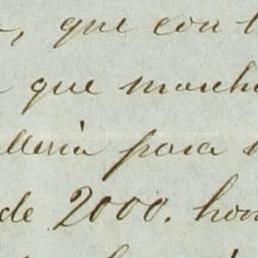 que con
que march
lleria para
de 2000. hom